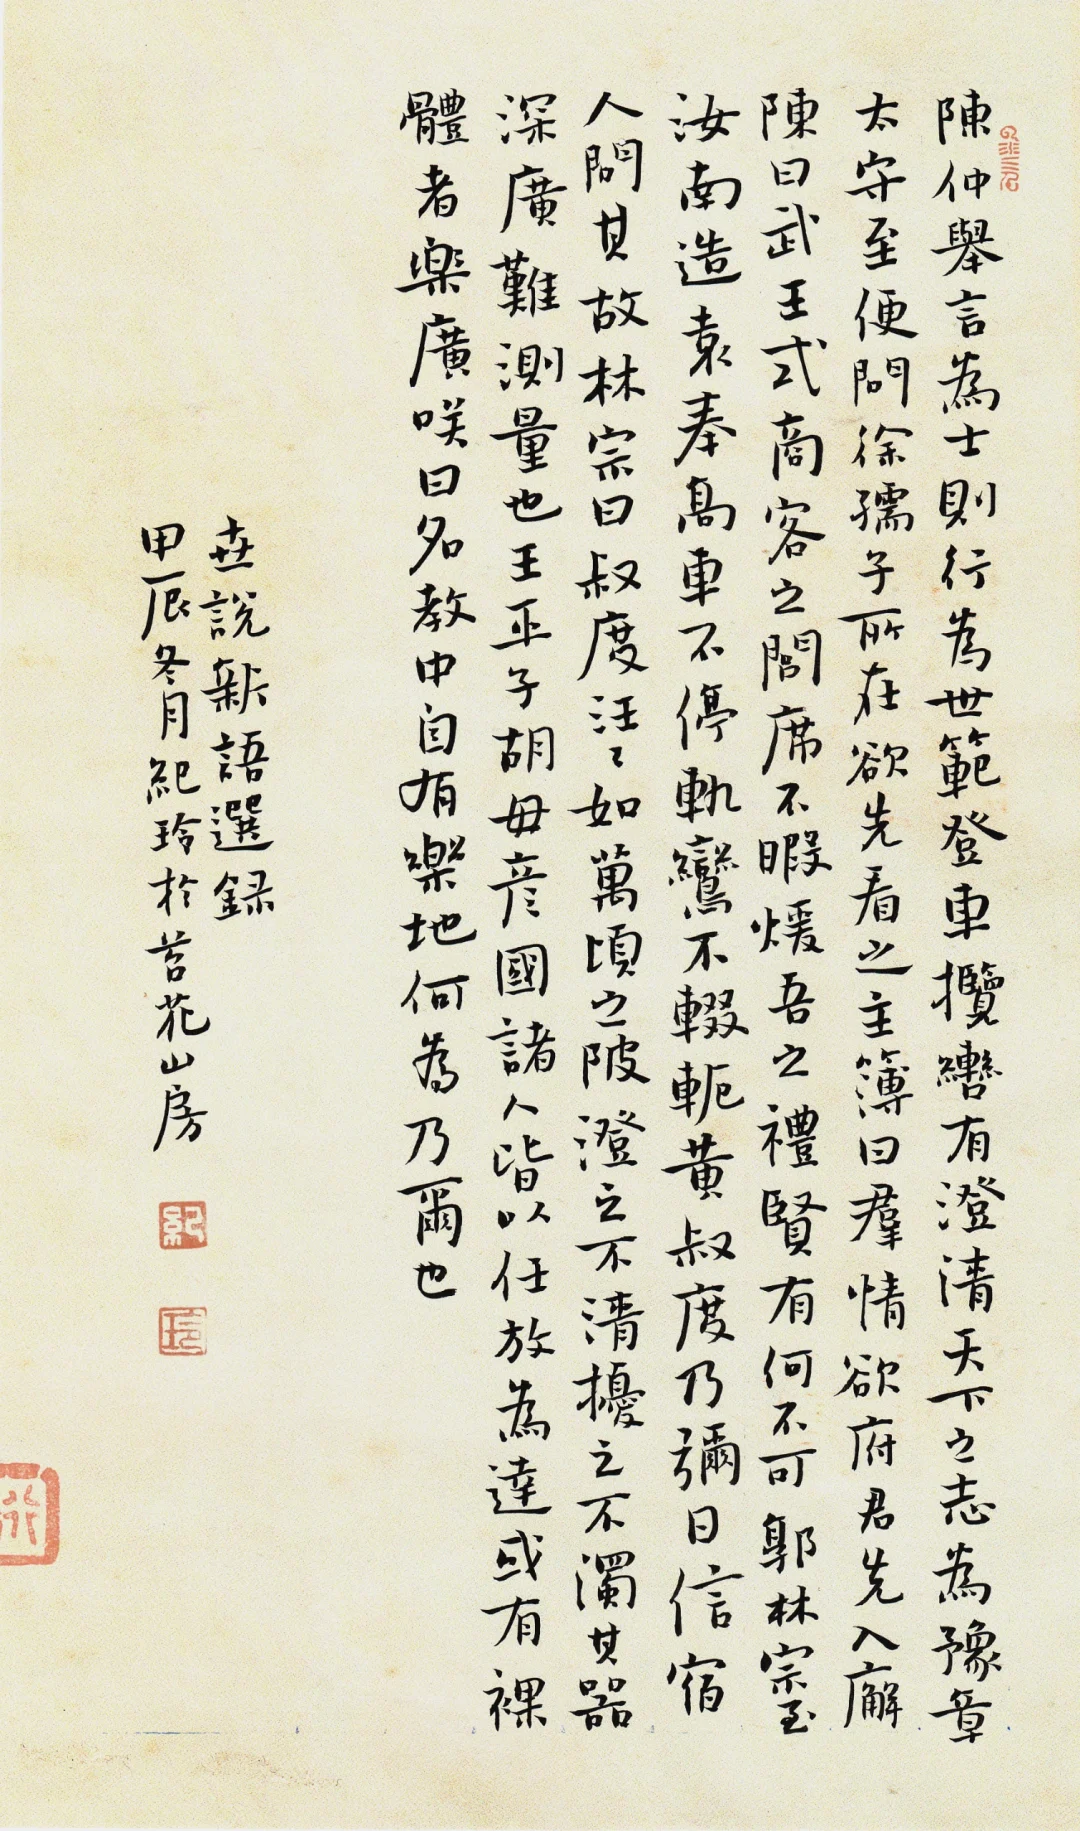 陳仲舉言為士則行為世範登車攬轡有澄清天下之志為豫章
太守至便問徐孺子所在欲先看之主簿曰羣情欲府君先入廨
陳曰武王式商容之閭席不暇煖吾之禮賢有何不可郭林宗至
汝南造袁奉高車不停軌鸞不輟軛黃叔度乃彌日信宿
人問其故林宗曰叔度汪〻如萬頃之陂澄之不清擾之不濁其器
深廣難測量也王平子胡毋彥國諸人皆以任放為達或有裸
體者樂廣咲曰名教中自有樂地何為乃爾也
世說新語選録
甲辰冬月紀玲於苔花山房
紀
玲